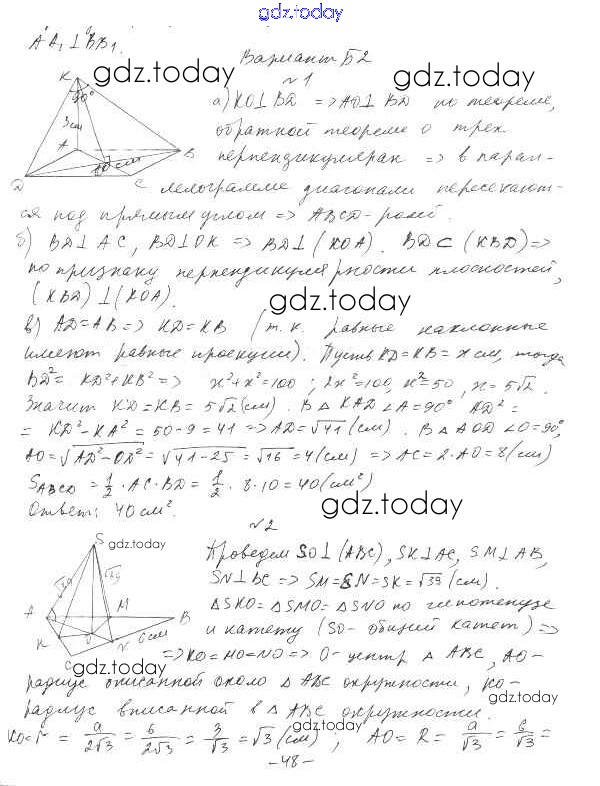 gdz.today
AA₁ ⊥ BB₁.
Вариант Б2
№1
gdz.today
gdz.today
а) KO⊥BD => AO⊥BD по теореме,
обратной теореме о трех
перпендикулярах => в парал-
лелограмме диагонали пересекают-
ся под прямым углом => ABCD - ромб.
K
90°
3см
A
B
10см
D
C
б) BD⊥AC, BD⊥OK => BD⊥(KOA). BD⊂(KBD) =>
по признаку перпендикулярности плоскостей,
(KBD)⊥(KOA).
gdz.today
в) AD=AB => KD=KB (т.к. равные наклонные
имеют равные проекции). Пусть KD=KB=x см, тогда
BD²= KD²+KB² => x²+x²=100; 2x²=100, x²=50, x=5√2.
Значит KD=KB=5√2 (см). В △KAD ∠A=90° AD²=
= KD²-KA²=50-9=41 => AD=√41 (см). В △AOD ∠O=90°,
AO=√AD²-OD²=√41-25=√16=4(см) => AC=2·AO=8(см)
S_ABCD=1/2·AC·BD=1/2·8·10=40(см²)
Ответ: 40см².
gdz.today
№2
S
gdz.today
√39
√39
A
M
B
K
O
N
6см
C
Проведем SO⊥(ABC), SK⊥AC, SM⊥AB,
SN⊥BC => SM=SN=SK=√39 (см).
△SKO=△SMO=△SNO по гипотенузе
и катету (SO- общий катет) =>
=> KO=MO=NO => O-центр △ABC, AO-
gdz.today
радиус описанной около △ABC окружности, KO-
gdz.today
радиус вписанной в △ABC окружности.
gdz.today
KO=r = a/2√3 = 6/2√3 = 3/√3 = √3 (см), AO=R= a/√3 = 6/√3 =
-48-
gdz.today